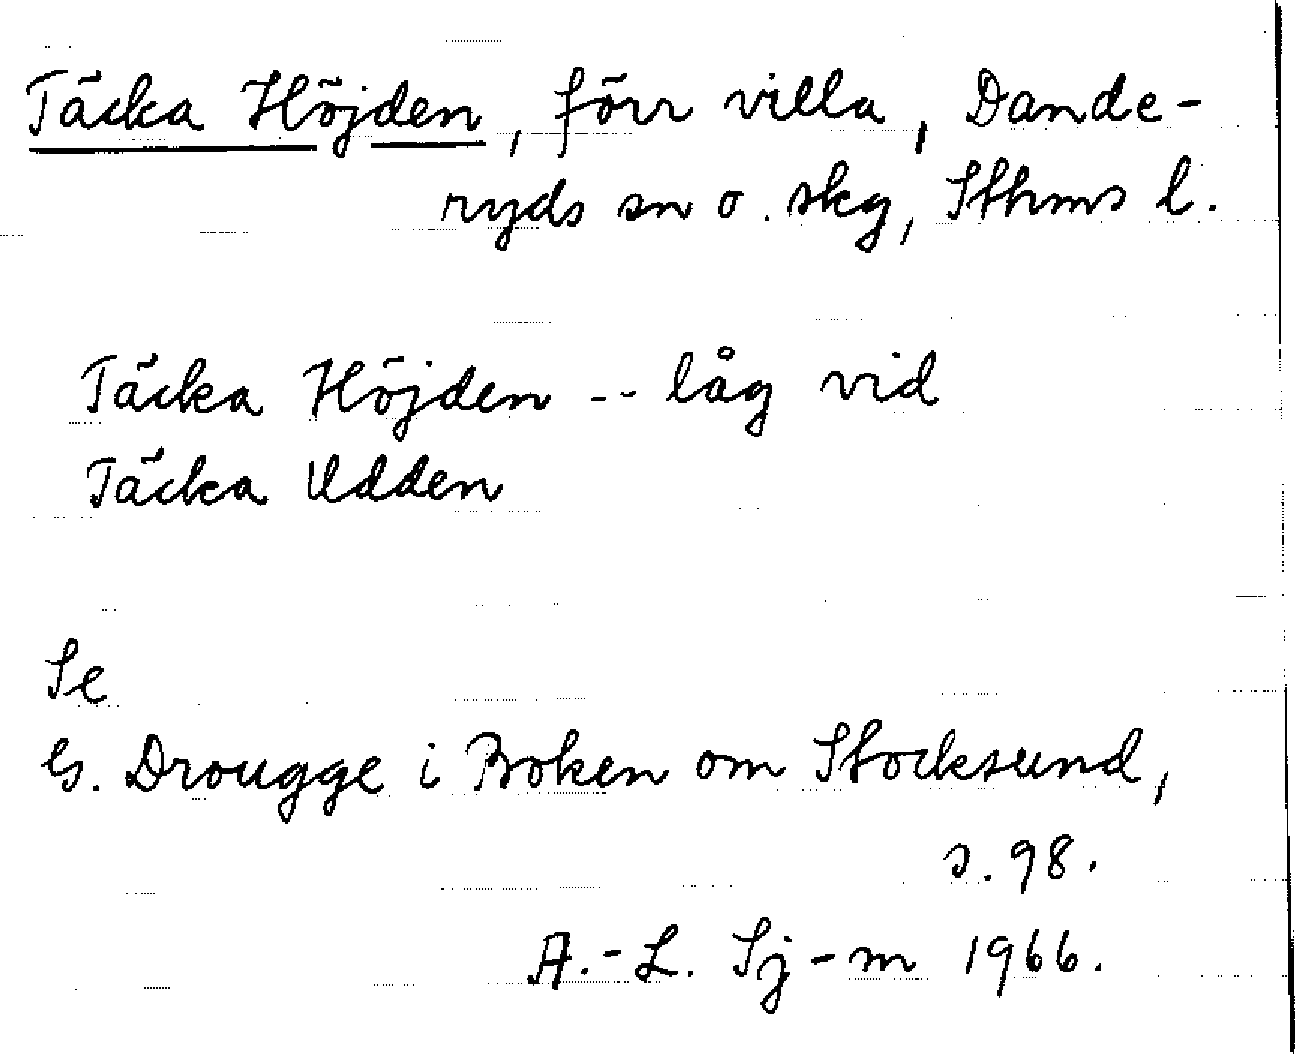 Täcka Höjden, förr villa, Dande-
ryds sn o. skg, Sthms l.
Täcka Höjden -- låg vid
Täcka Udden
Se
G. Drougge i Boken om Stocksund,
s. 98.
A.-L. Sj-m 1966.